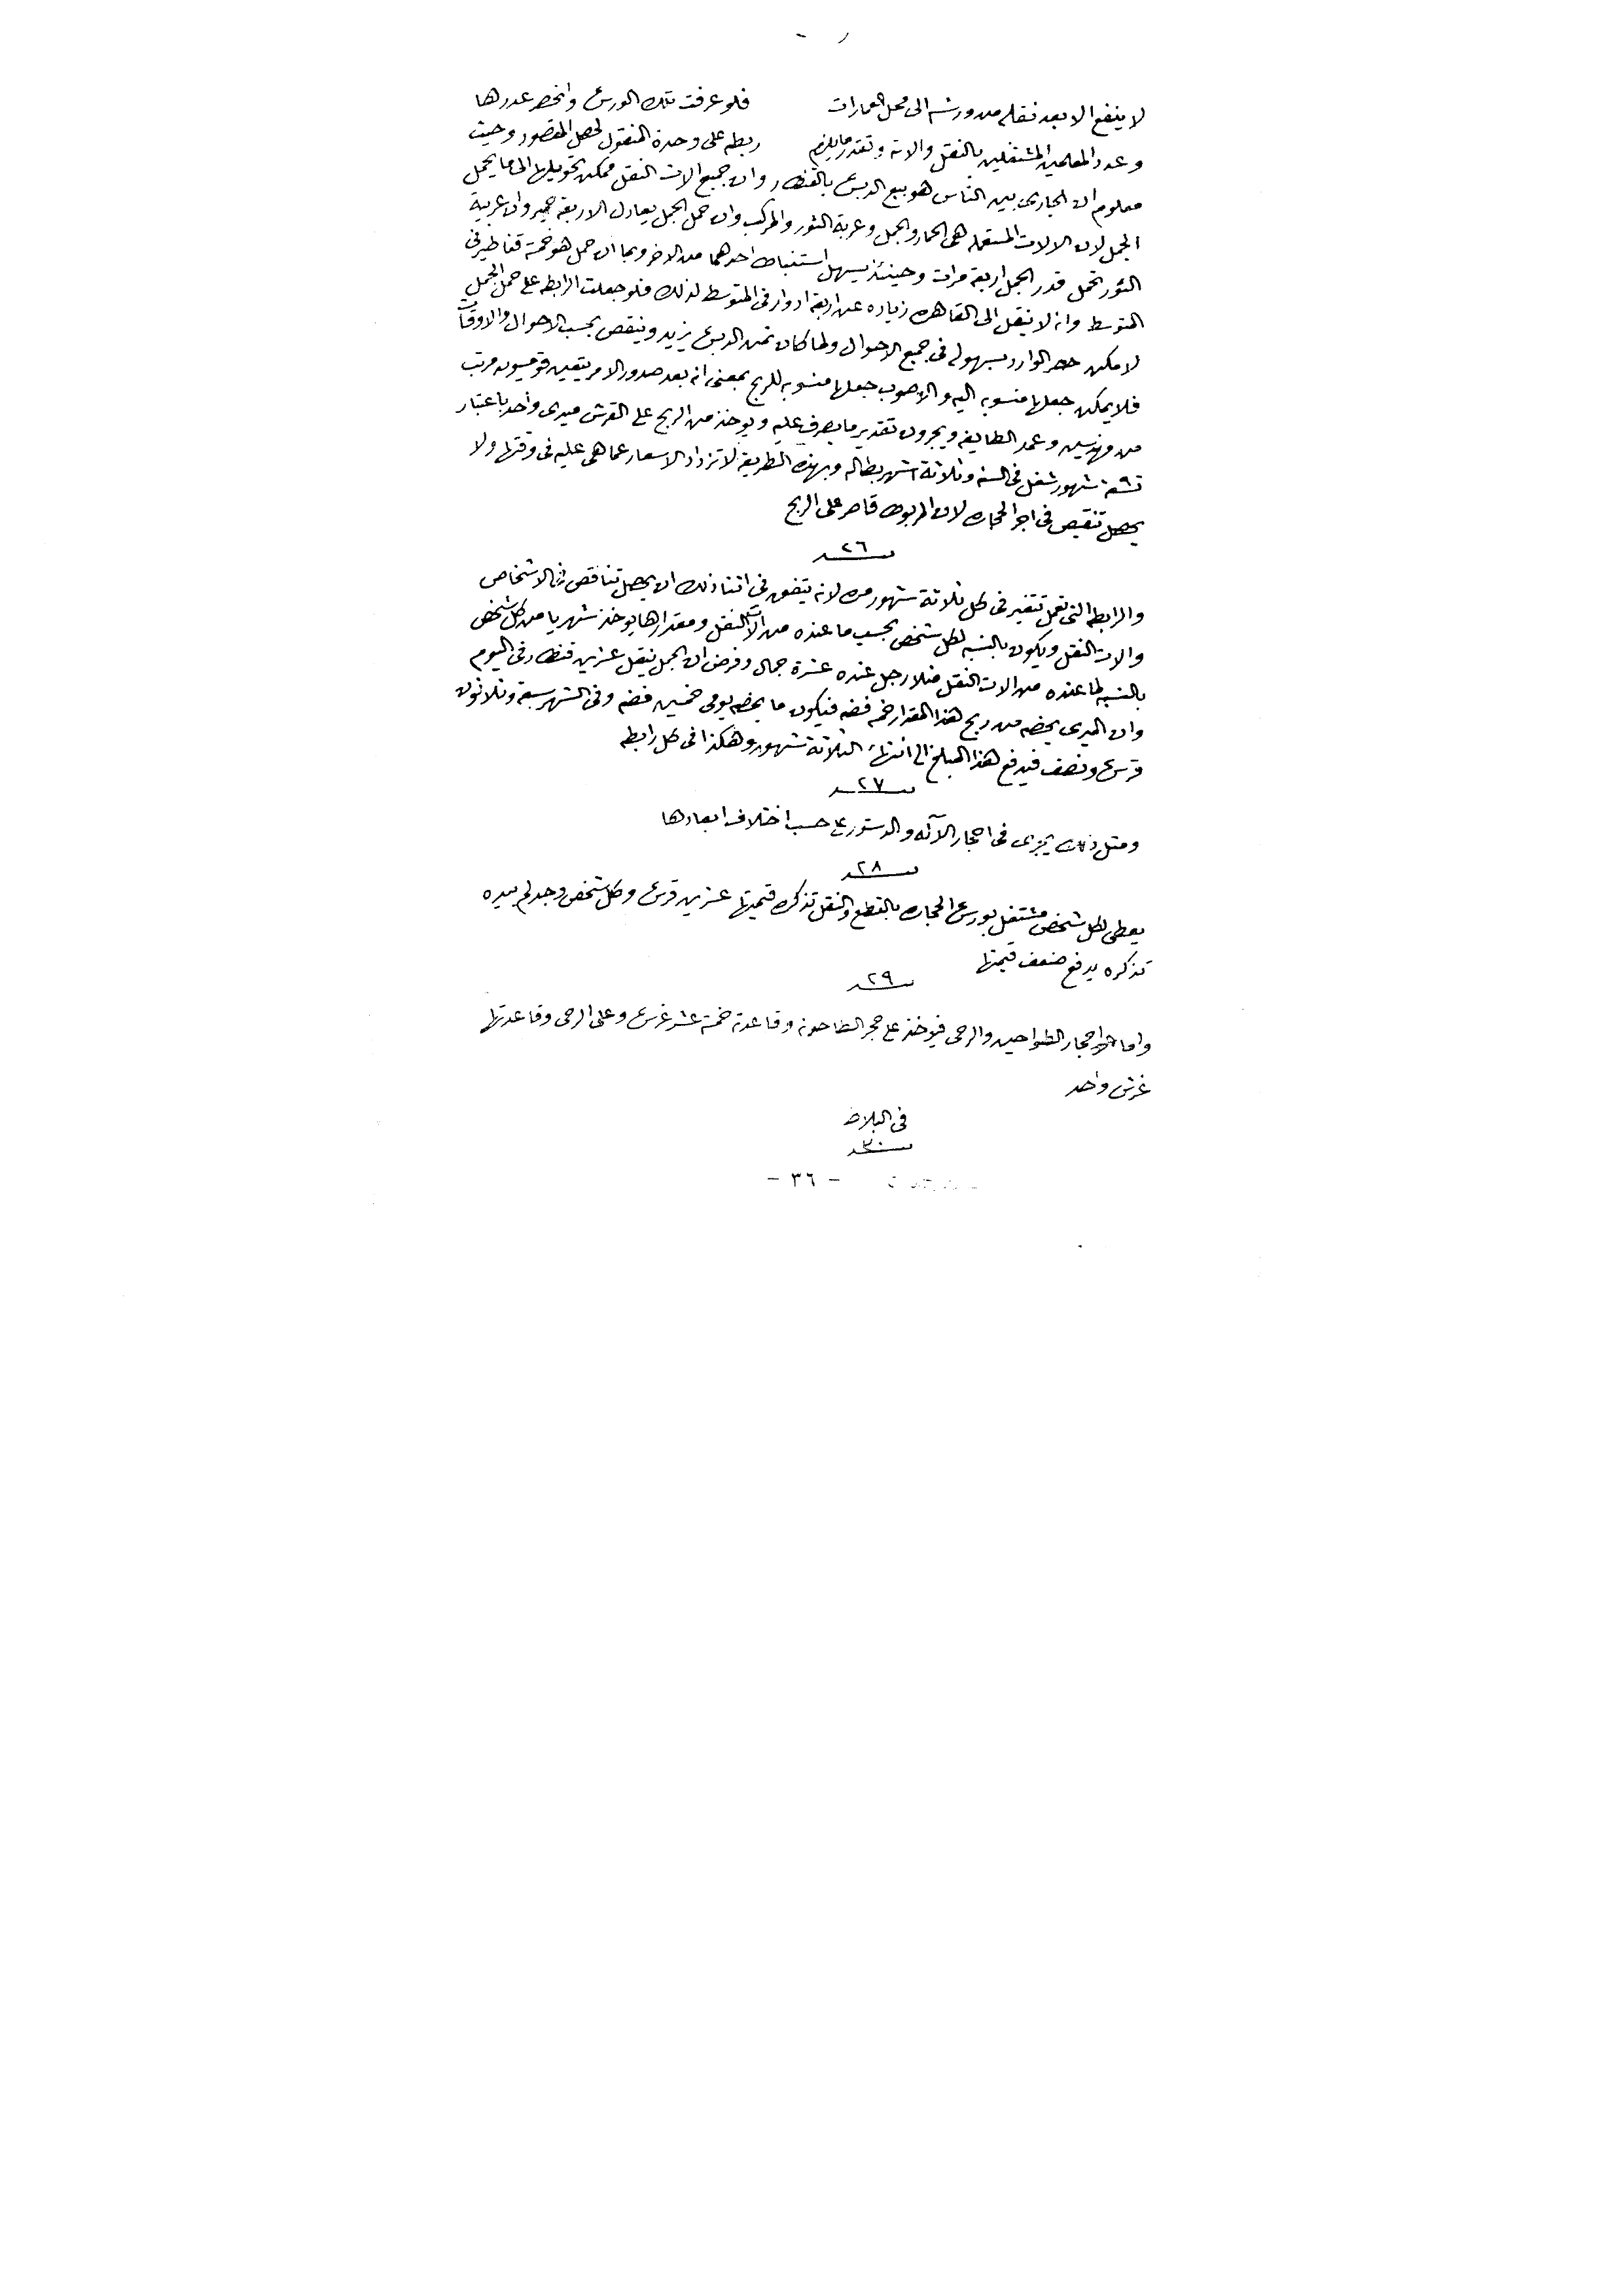 لا ينفع الا بعد نقله من ورشه الى محل العمارات فلو عرفت تلك الورش وانحصر عددها
وعدد المعلمين المشتغلين بالنقل والاته وتقدر ما يلزم ربطه على وحدة المنقول لحصل المقصود وحيث
معلوم ان الجارى بين الناس هو بيع الدبش بالقنطار وان جميع الات النقل ممكن تحويلها الى ما يحمل
الجمل لان الالات المستعمله هى الحمار والجمل وعربة الثور والمركب وان حمل الجمل يعادل الاربعة حمير وان عربية
الثور تحمل قدر الجمل اربعة مرات وحينئذ يسهل استنباط احدهما من الاخر وبما ان حمل هو خمسة قناطير فى
المتوسط وانه لا ينقل الى القاهره زياده عن اربعة ادوار فى المتوسط لذلك فلو جعلت الرابطه على حمل الجمل
لامكن حصر الوارد بسهوله فى جميع الاحوال ولما كان ثمن الدبش يزيد وينقص بحسب الاحوال والاوقات
فلا يمكن جعلها منسوبه اليه والاصوب جعلها منسوبه للربح بمعنى انه بعد صدور الامر يتعين قومسيون مرتب
من مهندسين وعمد الطايفه ويجرون تقدير ما يصرف عليه ويوخذ من الربح على القرش ميدى واحد باعتبار
تسعة شهور شغل فى السنه وثلاثة اشهر بطاله وبهذه الطريقه لا تزداد الاسعار عما هى عليه فى وقتها ولا
يحصل تنقيص فى اجر الحجاره لان المربوط قاصر على الربح
٢٦
والرابطه التى تعمل تتغير فى كل ثلاثة شهور مره لانه يتفق فى اثنا ذلك ان يحصل تناقص فى الاشخاص
والات النقل ويكون بالنسبه لكل شخص بحسب ما عنده من الات النقل ومقدارها يوخذ شهريا من كل شخص
بالنسبه لما عنده من الات النقل مثلا رجل عنده عشرة جمال وفرض ان الجمل ينقل عشرين قنطار فى اليوم
وان الميرى يخصه من ربح هذا المقدار خمسه فضه فيكون ما يخصه يومى خمسين فضه وفى الشهر سبعة وثلاثون
قرش ونصف فيدفع هذا المبلغ الى انتهاء الثلاثة شهور وهكذا فى كل رابطه
٢٧
ومثل ذلك يجرى فى احجار الآله والدستور على حسب اختلاف ابعادها
٢٨
يعطى لكل شخص مشتغل بورش الحجاره بالقطع والنقل تذكره قيمتها عشرين قرش وكل شخص وجد لم بيده
تذكره يدفع ضعف قيمتها
٢٩
واما احجار الطواحين والرحى فيوخذ على حجر الطاحونه وقاعدته خمسة عشر غرش وعلى الرحى وقاعدتها
غرش واحد
فى البلاط
٣٠
- ٣٦ -